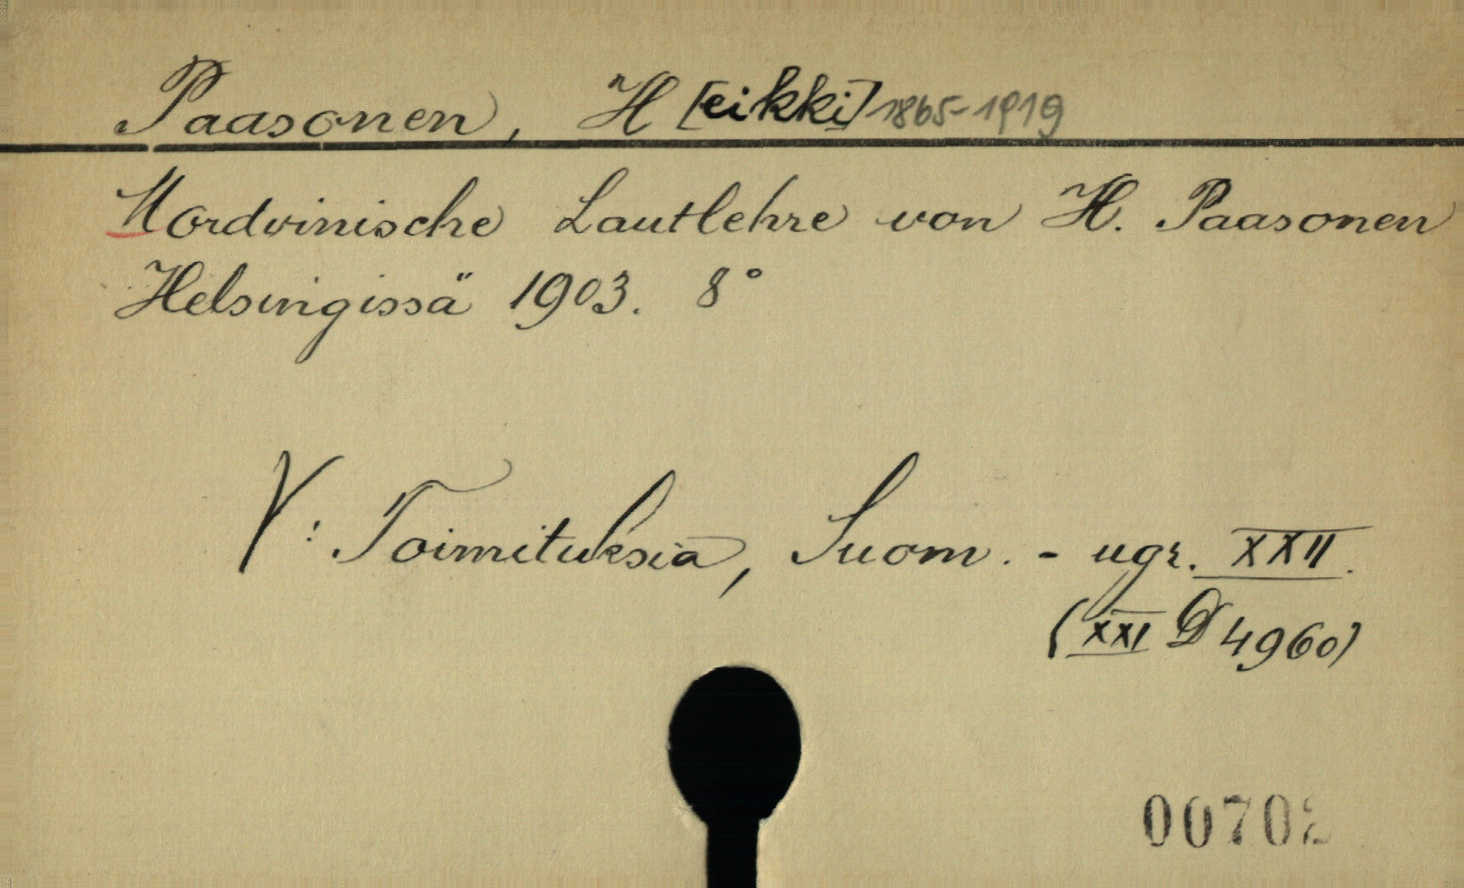 Paasonen, H[eikki] 1865-1919
Mordvinische Lautlehre von H. Paasonen
Helsingissä 1903. 8°
V: Toimituksia, Suom. - ugr. XXII.
(XXI D 4960)
00702